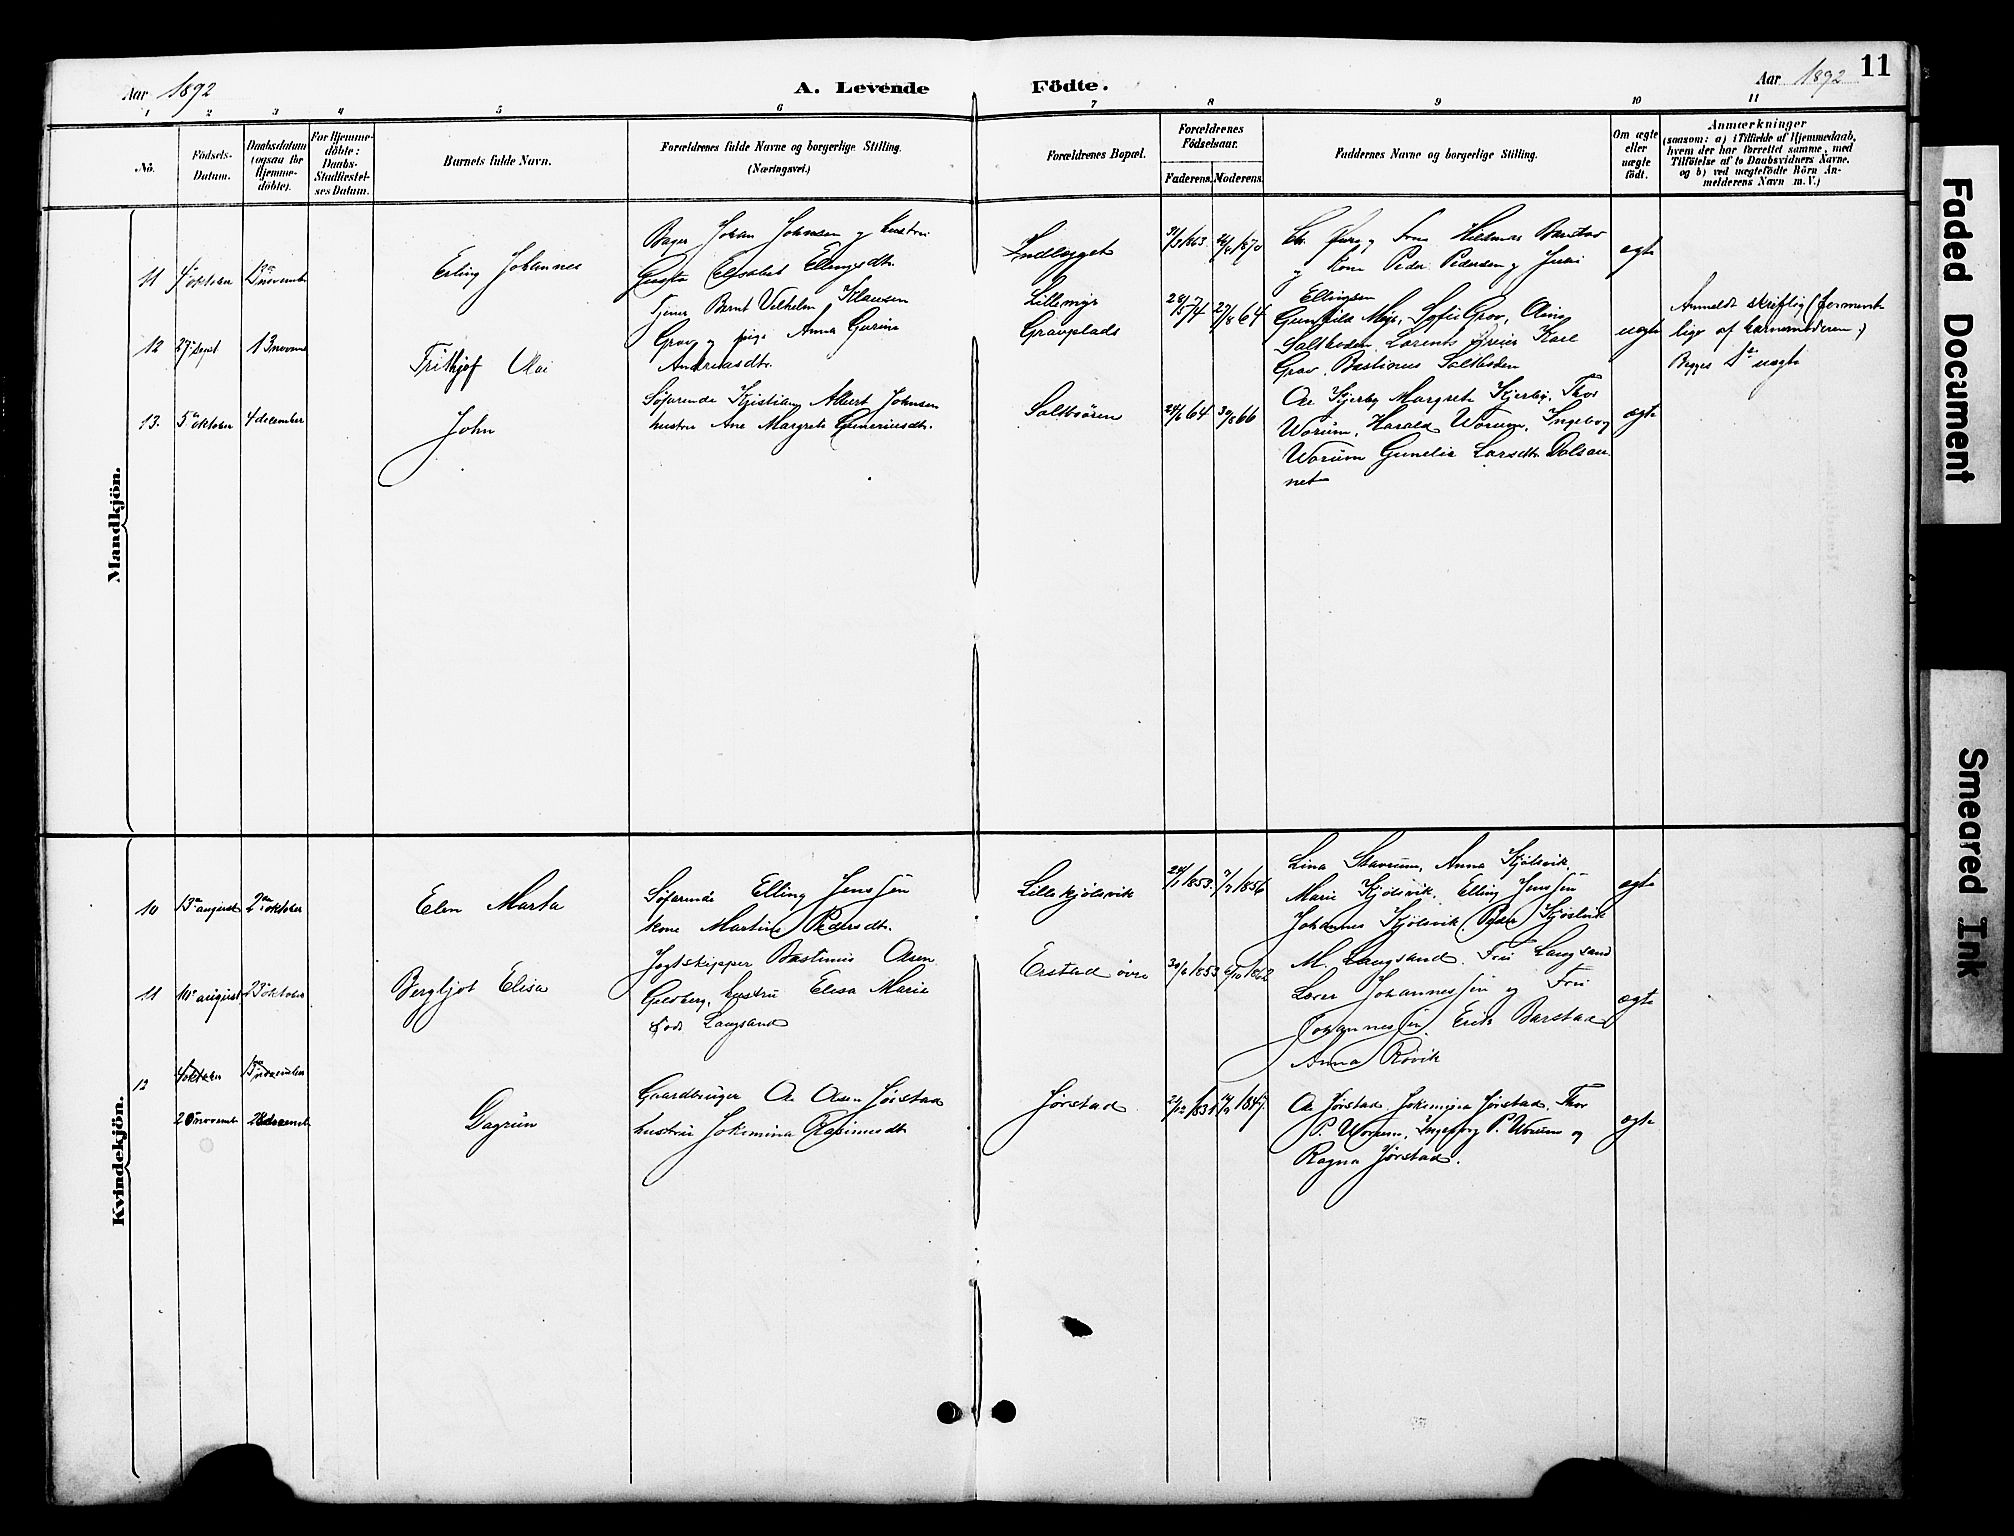 11
Aar 1892
A. Levende Födte.
Aar 1892
1 2 3 4 5 6 7 8 9 10 11
No.
Födsels-
Datum.
Daabsdatum
(ogsaa for
Hjemme-
döbte).
For Hjemme-
döbte:
Daabs-
Stadfæstel-
ses Datum.
Barnets fulde Navn.
Forældrenes fulde Navne og borgerlige Stilling.
(Næringsvei.)
Forældrenes Bopæl.
Forældrenes
Födselsaar.
Faderens.
Moderens.
Faddernes Navne og borgerlige Stilling.
Om ægte
eller
uægte
födt.
Anmærkninger
(saasom: a) i Tilfælde af Hjemmedaab,
hvem der har forrettet samme, med
Tilföielse af to Daabsvidners Navne.
og b) ved uægtefödte Börn An-
melderens Navn m. V.)
Mandkjön.
11
4 oktober
november
Erling Johannes
Bager Johan Johnsen og hustru
Elisabet Ellingsdtr.
Indlægget
31/3 1863
Hilmar
og kone Peder Pedersen og
Ellingsen
ægte
12
27 sept
13 novem
Fritkjof Mai
Tjener Bernt Vilhelm Klausen
Grav og pige Anna Gurine
Andreasdtr.
Lillemyr
Gravplads
28/5 74
27/8 64
Gunhild Myr, Sofie Grav, Oline
Saltboden, Lorents Karl
Grav, Bastianus Saltboden
uægte
Anmeldt skriftlig (forment-
lige af barnemoderen.)
Begges 1ste uægte
13.
5 oktober
4 december
John
Söfarende Kristian Albert Johnsen
hustru Ane Margrete Guneriusdtr.
Saltbören
28/6 64
30/8 66
Ole Kjerby Margrete Kjerby, Thor
Worum, Harald Worum, Ingeborg
Worum Gunelie Larsdtr Dalsau
net
ægte
Kvindekjön.
10
13 august
2 oktober
Elen Marta
Söfarende Elling Jenssen
kone Martine Pedersdtr.
Lillekjølsvik
24/1 1853.
7/7 1856
Lina Skavrum, Anna Kjölsvik,
Marie Kjölsvik, Elling Jenssen
Johannes Kjölsvik, Peder Kjölsvik
ægte
11
10 august
23 oktober
Bergljot Elisa
Jagtskipper Bastinus Olsen
Geldberg, hustru Elisa Marie
föd Langsand
Erstad øvre
30/6 1853
6/10 1862
M. Langsand. Fru Langsand
Lærer Johannessen og Fru
Johannessen, Erik Barstad
Anna Røvik
ægte
12
4 oktober
13 november
20 novemb
28 decemb
Dagrun
Gaardbruger Ole Olsen Jørstad
hustru Jokimina Rasimusdtr
Jørstad
21/12 1834
24/9 1847.
Ole Jørstad Jokimina Jørstad, Thor
P. Worum, Ingeborg P. Worum og
Ragna Jørstad.
ægte
Faded Document
Smeared Ink